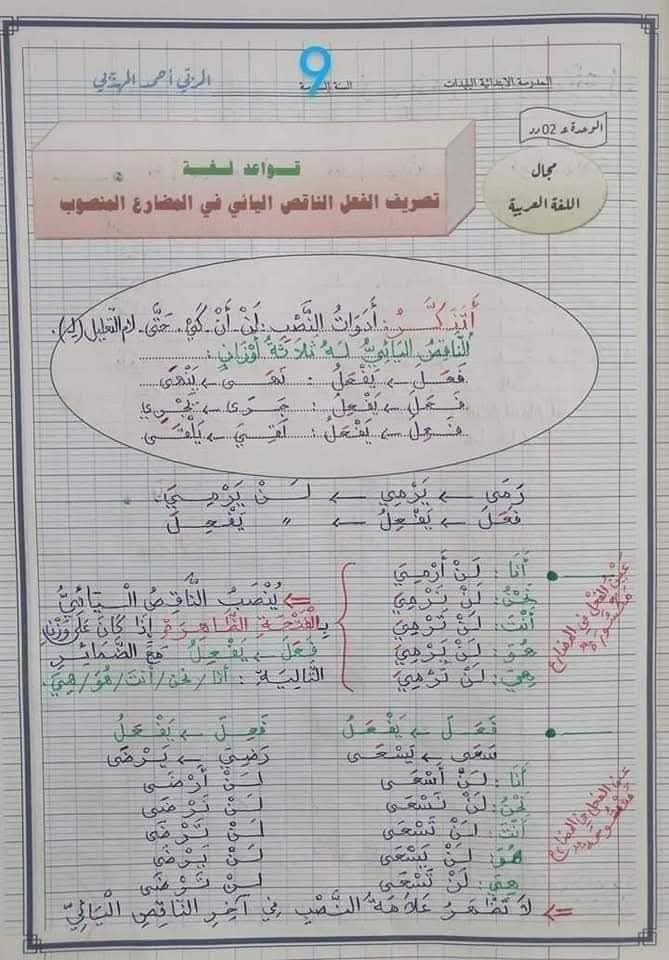 المدرسة الابتدائية البليدات
السنة
9
المربّي أحمد المهذبي
الوحدة ع02دد
مجال
اللغة العربية
قواعد لغة
تصريف الفعل الناقص اليائي في المضارع المنصوب
أَتَذَكَّرُ: أَدَوَاتُ النَّصْبِ: لَنْ - أَنْ - كَيْ - حَتَّى - لام التعليل (لِـ).
النَّاقِصُ اليَائِيُّ لَهُ ثَلَاثَةُ أَوْزَانٍ:
فَعَلَ ← يَفْعَلُ : نَهَى ← يَنْهَى
فَعَلَ ← يَفْعِلُ : جَرَى ← يَجْرِي
فَعِلَ ← يَفْعَلُ : لَقِيَ ← يَلْقَى
رَمَى ← يَرْمِي ← لَنْ يَرْمِيَ.
فَعَلَ ← يَفْعِلُ ← " يَفْعِلَ
أَنَا : لَنْ أَرْمِيَ
نَحْنُ : لَنْ نَرْمِيَ
أَنْتَ : لَنْ تَرْمِيَ
هُوَ : لَنْ يَرْمِيَ
هِيَ : لَنْ تَرْمِيَ
⇐ يُنْصَبُ النَّاقِصُ الْيَائِيُّ
بِالْفَتْحَةِ الظَّاهِرَةِ إِذَا كَانَ عَلَى وَزْنِ
فَعَلَ ← يَفْعِلُ مَعَ الضَّمَائِرِ
التَّالِيَةِ : أنا / نحن / أنتَ / هُوَ / هِيَ.
عين الفعل في المضارع
مكسورة
فَعَلَ ← يَفْعَلُ فَعِلَ ← يَفْعَلُ
سَعَى ← يَسْعَى رَضِيَ ← يَرْضَى
أَنَا : لَنْ أَسْعَى لَنْ أَرْضَى
نَحْنُ : لَنْ نَسْعَى لَنْ نَرْضَى
أَنْتَ : لَنْ تَسْعَى لَنْ تَرْضَى
هُوَ : لَنْ يَسْعَى لَنْ يَرْضَى
هِيَ : لَنْ تَسْعَى لَنْ تَرْضَى
عين الفعل في المضارع
مفتوحة
⇐ لَا تَظْهَرُ عَلَامَةُ النَّصْبِ فِي آخِرِ النَّاقِصِ الْيَائِيِّ